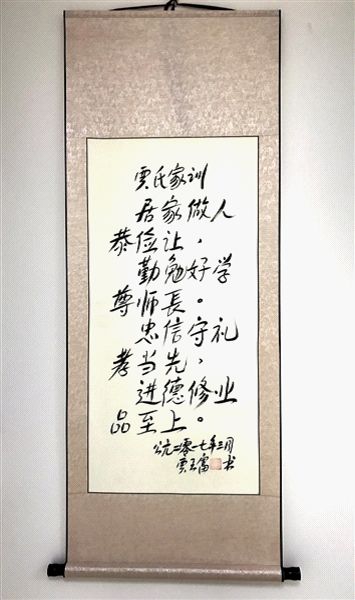 贾氏家训
居家做人
恭俭让，
勤勉好学
尊师長。
忠信守礼
孝当先，
进德修业
品至上。
公元二零一七年三月
贾玉富书